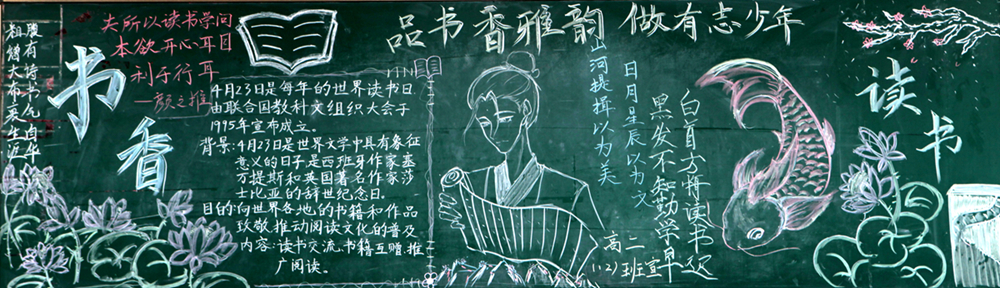 腹有诗书气自华
粗缯大布裹生涯
书香
夫所以读书学问
本欲开心耳目
利于行耳
—颜之推
品书香雅韵 做有志少年
4月23日是每年的世界读书日
由联合国教科文组织大会于
1995年宣布成立。
背景:4月23日是世界文学中具有象征
意义的日子是西班牙作家塞
万提斯和英国著名作家莎
士比亚的辞世纪念日。
目的:向世界各地的书籍和作品
致敬,推动阅读文化的普及
内容:读书交流,书籍互赠,推
广阅读。
山河提挥以为美
日月星辰以为文
黑发不知勤学早
白首方悔读书迟
高二
(12)班宣
读书